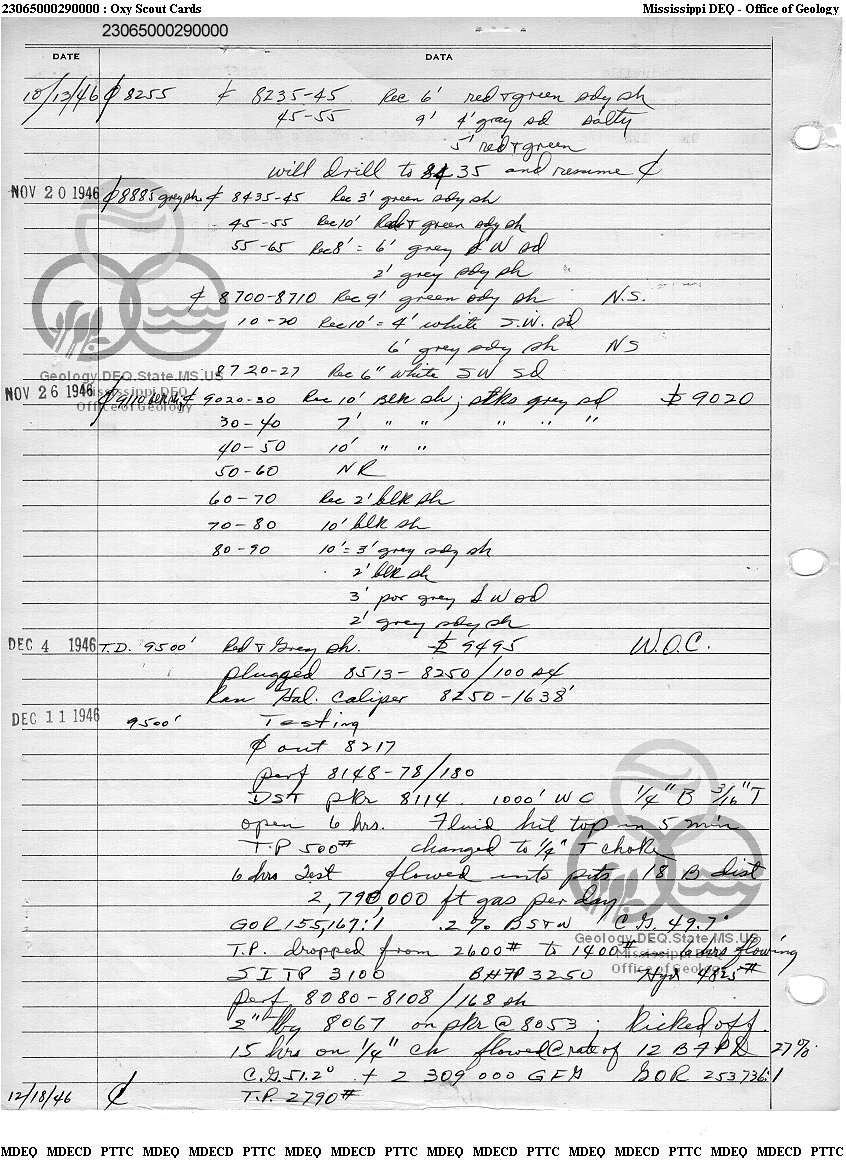 23065000290000 : Oxy Scout Cards Mississippi DEQ - Office of Geology
23065000290000
DATE DATA
10/13/46 ₵ 8255 ₵ 8235-45 Rec 6' red & green sdy sh
45-55 9' 4' gray sd salty
5' red & green
will drill to 8435 and resume ₵
NOV 20 1946 ₵ 8885 grey sh ₵ 8435-45 Rec 3' green sdy sh
45-55 Rec 10' Red & green sdy sh
55-65 Rec 8' = 6' grey S W sd
2' grey sdy sh
₵ 8700-8710 Rec 9' green sdy sh N.S.
10-20 Rec 10' = 4' white S.W. sd
6' grey sdy sh NS
8720-27 Rec 6" white SW Sd
Geology.DEQ.State.MS.US
Mississippi DEQ
Office of Geology
NOV 26 1946 ₵ 9110 blk sh ₵ 9020-30 Rec 10' Blk sh; stks grey sd 9020
30-40 7' " " " " "
40-50 10' " "
50-60 NR
60-70 Rec 2' blk sh
70-80 10' blk sh
80-90 10' = 3' grey sdy sh
2' blk sh
3' por grey S W sd
2' grey sdy sh
DEC 4 1946 T.D. 9500' Red & Grey sh. 9495 W.O.C.
plugged 8513-8250/100 sx
Ran Hal. Caliper 8250-1638'
DEC 11 1946 9500' Testing
₵ out 8217
perf 8148-78/180
DST pkr 8114. 1000' WC 1/4" B 3/16" T
open 6 hrs. Fluid hit top in 5 min
T.P 500# changed to 1/4" T choke
6 hrs Test flowed into pits 18 B dist
2,790,000 ft gas per day
GOR 155,167:1 .2% BS&W C.G. 49.7°
T.P. dropped from 2600# to 1400# 6 hrs flowing
Geology.DEQ.State.MS.US
Mississippi DEQ
Office of Geology
SITP 3100 BHFP 3250 Hyd 4825#
perf 8080-8108/168 sh
2" tbg 8067 on pkr @ 8053; Kicked off.
15 hrs on 1/4" ch flowed @ rate of 12 BFPD 27%
C.G. 51.2° + 2 309 000 GFG GOR 253736:1
12/18/46 ₵ T.P. 2790#
MDEQ MDECD PTTC MDEQ MDECD PTTC MDEQ MDECD PTTC MDEQ MDECD PTTC MDEQ MDECD PTTC MDEQ MDECD PTTC